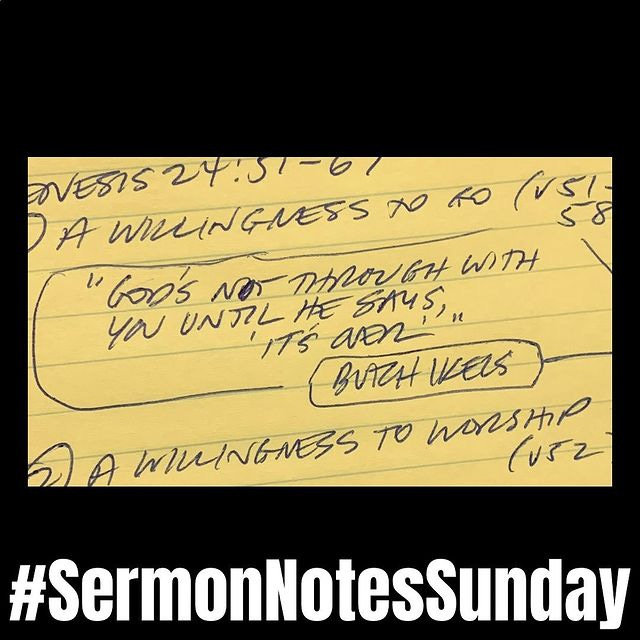 GENESIS 24:51-67
1) A WILLINGNESS TO GO (v51-
58
"GOD'S NOT THROUGH WITH
YOU UNTIL HE SAYS,
'IT'S OVER'."
BUTCH IKELS
2) A WILLINGNESS TO WORSHIP
(v52
#SermonNotesSunday